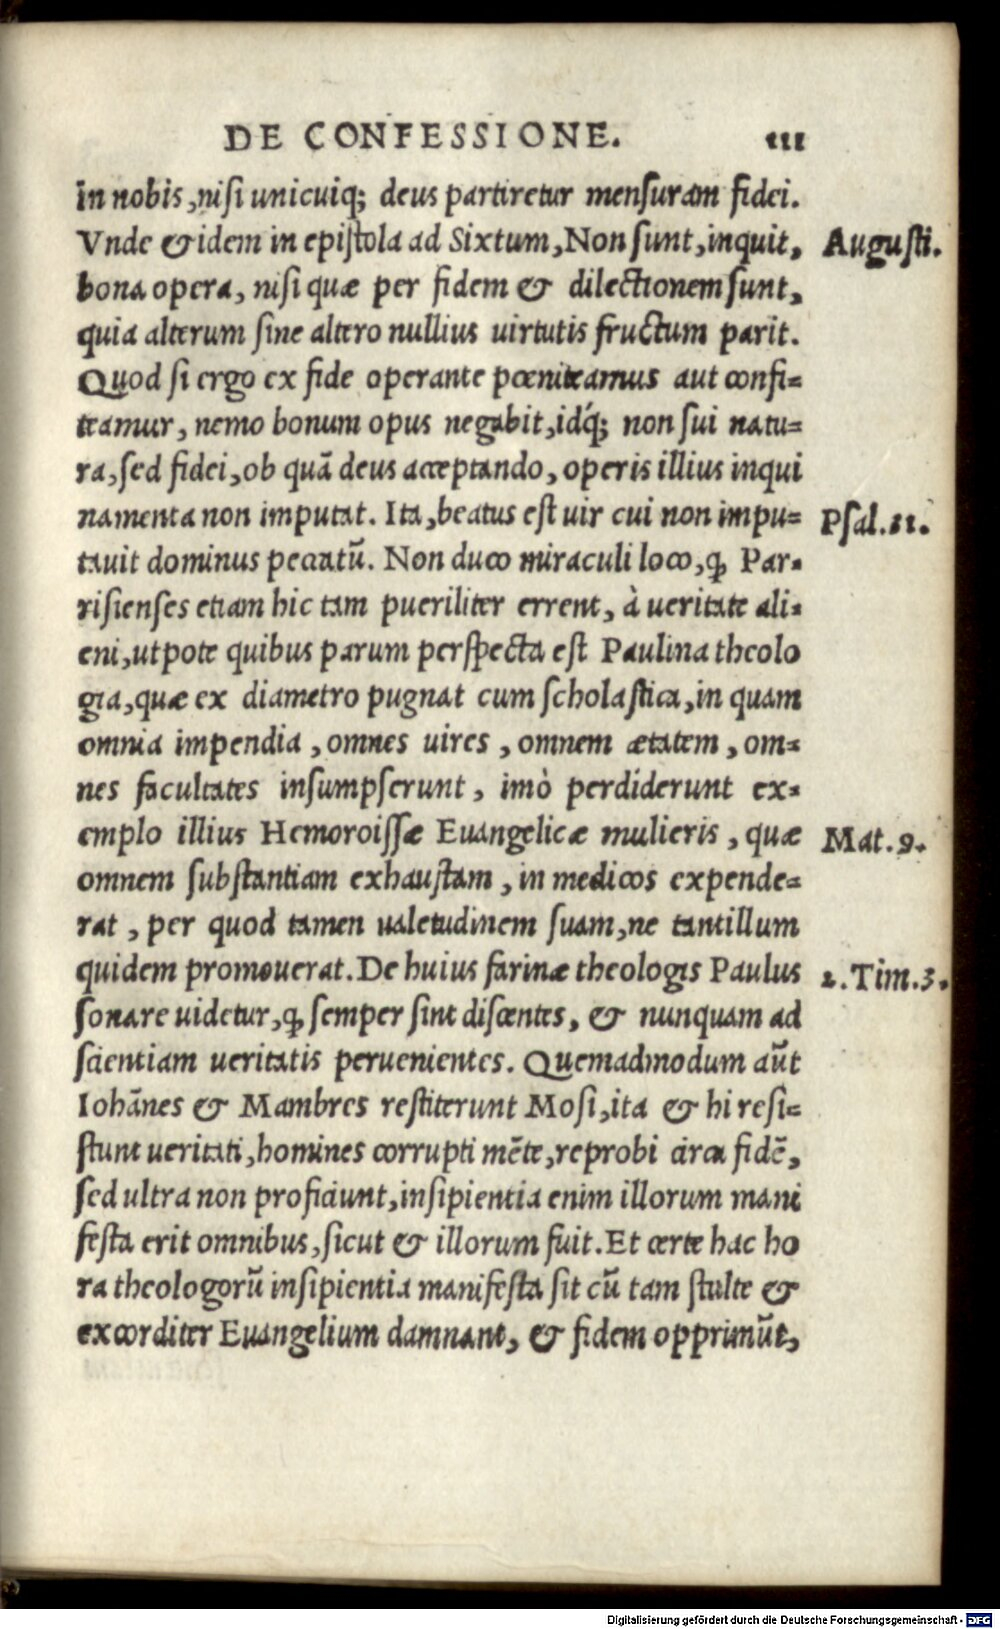 DE CONFESSIONE. 111
in nobis, nisi unicuiq; deus partiretur mensuram fidei.
Vnde & idem in epistola ad Sixtum, Non sunt, inquit, Augusti.
bona opera, nisi quæ per fidem & dilectionem sunt,
quia alterum sine altero nullius uirtutis fructum parit.
Quod si ergo ex fide operante pœniteamus aut confi=
teamur, nemo bonum opus negabit, idq́; non sui natu=
ra, sed fidei, ob quā deus acceptando, operis illius inqui
namenta non imputat. Ita, beatus est uir cui non impu= Psal.31.
tauit dominus peccatū. Non duco miraculi loco, ꝙ Par=
risienses etiam hic tam pueriliter errent, à ueritate ali=
eni, utpote quibus parum perspecta est Paulina theolo
gia, quæ ex diametro pugnat cum scholastica, in quam
omnia impendia, omnes uires, omnem ætatem, om=
nes facultates insumpserunt, imò perdiderunt ex=
emplo illius Hemoroissæ Euangelicæ mulieris, quæ Mat.9.
omnem substantiam exhaustam, in medicos expende=
rat, per quod tamen ualetudinem suam, ne tantillum
quidem promouerat. De huius farinæ theologis Paulus 2.Tim.3.
sonare uidetur, ꝙ semper sint discentes, & nunquam ad
scientiam ueritatis peruenientes. Quemadmodum aūt
Iohānes & Mambres restiterunt Mosi, ita & hi resi=
stunt ueritati, homines corrupti mēte, reprobi circa fidē,
sed ultra non proficiunt, insipientia enim illorum mani
festa erit omnibus, sicut & illorum fuit. Et certe hac ho
ra theologorū insipientia manifesta sit cū tam stulte &
excorditer Euangelium damnant, & fidem opprimūt,
Digitalisierung gefördert durch die Deutsche Forschungsgemeinschaft - DFG